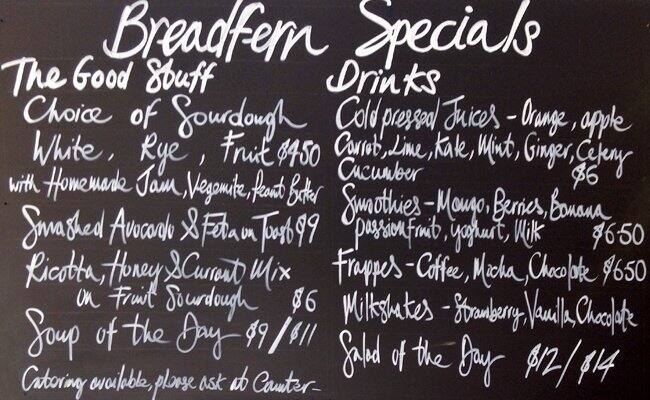 Breadfern Specials
The Good Stuff
Choice of Sourdough
White, Rye, Fruit $4.50
with Homemade Jam, Vegemite, Peanut Butter
Smashed Avocado & Feta on Toast $9
Ricotta, Honey & Currant Mix
on Fruit Sourdough $6
Soup of the Day $9/$11
Catering available, please ask at Counter-
Drinks
Cold pressed Juices - Orange, apple
Carrot, Lime, Kale, Mint, Ginger, Celery
Cucumber $6
Smoothies - Mango, Berries, Banana
passionfruit, yoghurt, Milk $6.50
Frappes - Coffee, Mocha, Chocolate $6.50
Milkshakes - Strawberry, Vanilla, Chocolate
Salad of the Day $12/$14